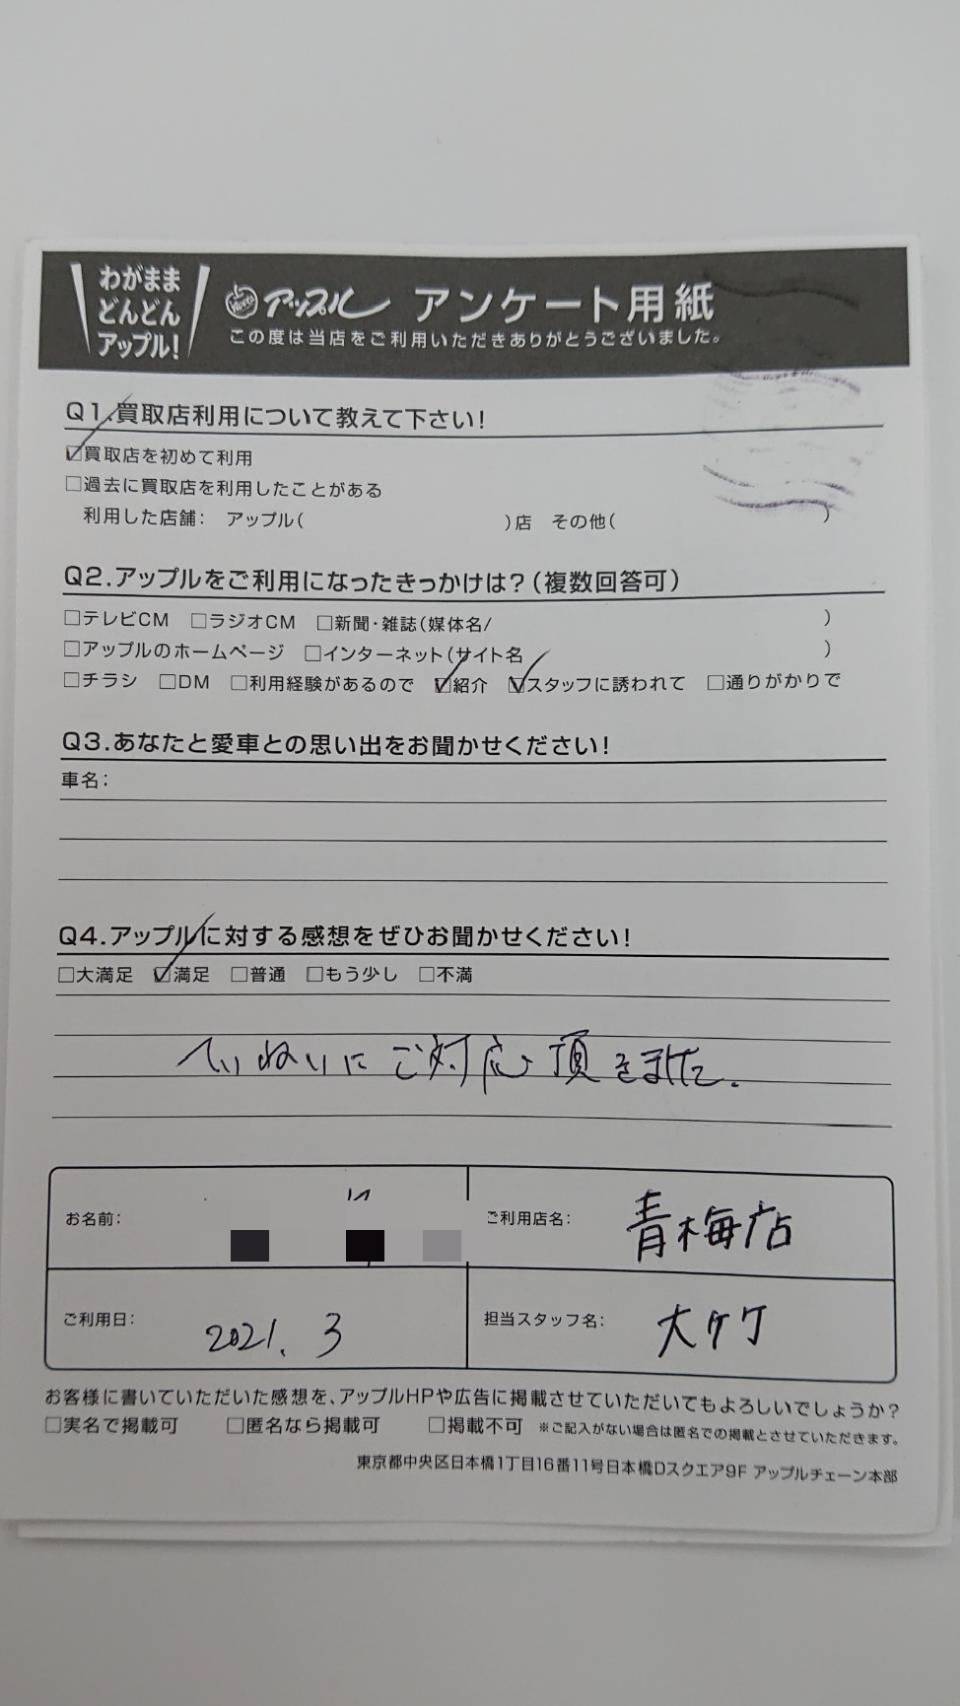 わがまま
どんどん
アップル!
アップル アンケート用紙
この度は当店をご利用いただきありがとうございました。
Q1.買取店利用について教えて下さい!
☑買取店を初めて利用
□過去に買取店を利用したことがある
利用した店舗: アップル( )店 その他( )
Q2.アップルをご利用になったきっかけは?(複数回答可)
□テレビCM □ラジオCM □新聞・雑誌(媒体名/ )
□アップルのホームページ □インターネット(サイト名 )
□チラシ □DM □利用経験があるので ☑紹介 ☑スタッフに誘われて □通りがかりで
Q3.あなたと愛車との思い出をお聞かせください!
車名:
Q4.アップルに対する感想をぜひお聞かせください!
□大満足 ☑満足 □普通 □もう少し □不満
ていねいにご対応頂きました.
お名前:
ご利用店名: 青梅店
ご利用日: 2021. 3
担当スタッフ名: 大ケク
お客様に書いていただいた感想を、アップルHPや広告に掲載させていただいてもよろしいでしょうか?
□実名で掲載可 □匿名なら掲載可 □掲載不可 ※ご記入がない場合は匿名での掲載とさせていただきます。
東京都中央区日本橋1丁目16番11号日本橋Dスクエア9F アップルチェーン本部